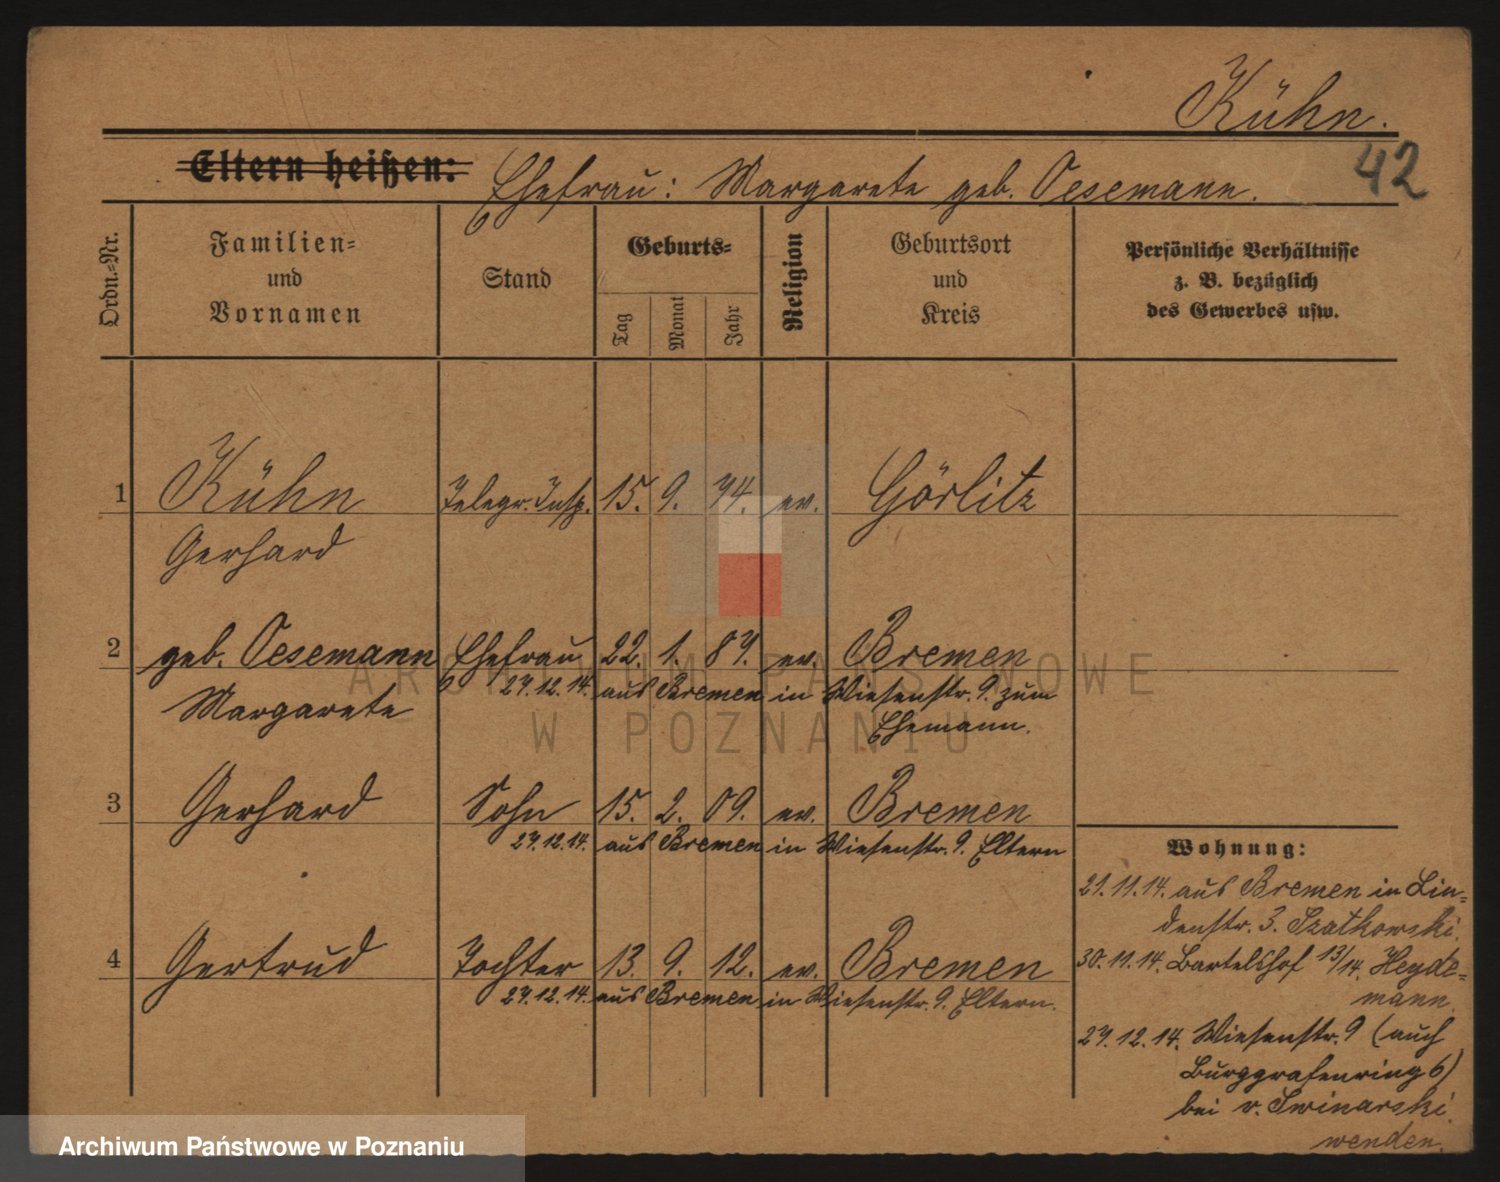 Kühn.
42
Eltern heißen: Ehefrau: Margarete geb. Oesemann.
Ordn.-Nr.
Familien-
und
Vornamen
Stand
Geburts-
Tag
Monat
Jahr
Religion
Geburtsort
und
Kreis
Persönliche Verhältnisse
z. B. bezüglich
des Gewerbes usw.
1 Kühn Telegr. Insp. 15. 9. 74. ev. Görlitz
Gerhard
2 geb. Oesemann Ehefrau 22. 1. 87. ev. Bremen
Margarete 27.12.14. aus Bremen in Wiesenstr. 9. zum
Ehemann.
3 Gerhard Sohn 15. 2. 09. ev. Bremen
27.12.14. aus Bremen in Wiesenstr. 9. Eltern
4 Gertrud Tochter 13. 9. 12. ev. Bremen
27.12.14. aus Bremen in Wiesenstr. 9. Eltern.
Wohnung:
21.11.14. aus Bremen in Lin-
denstr. 3. Szatkowski.
30.11.14. Bartelshof 13/14. Heyde-
mann.
27.12.14. Wiesenstr. 9 (auch
Burggrafenring 6)
bei v. Swinarski.
wenden.
ARCHIWUM PAŃSTWOWE
W POZNANIU
Archiwum Państwowe w Poznaniu